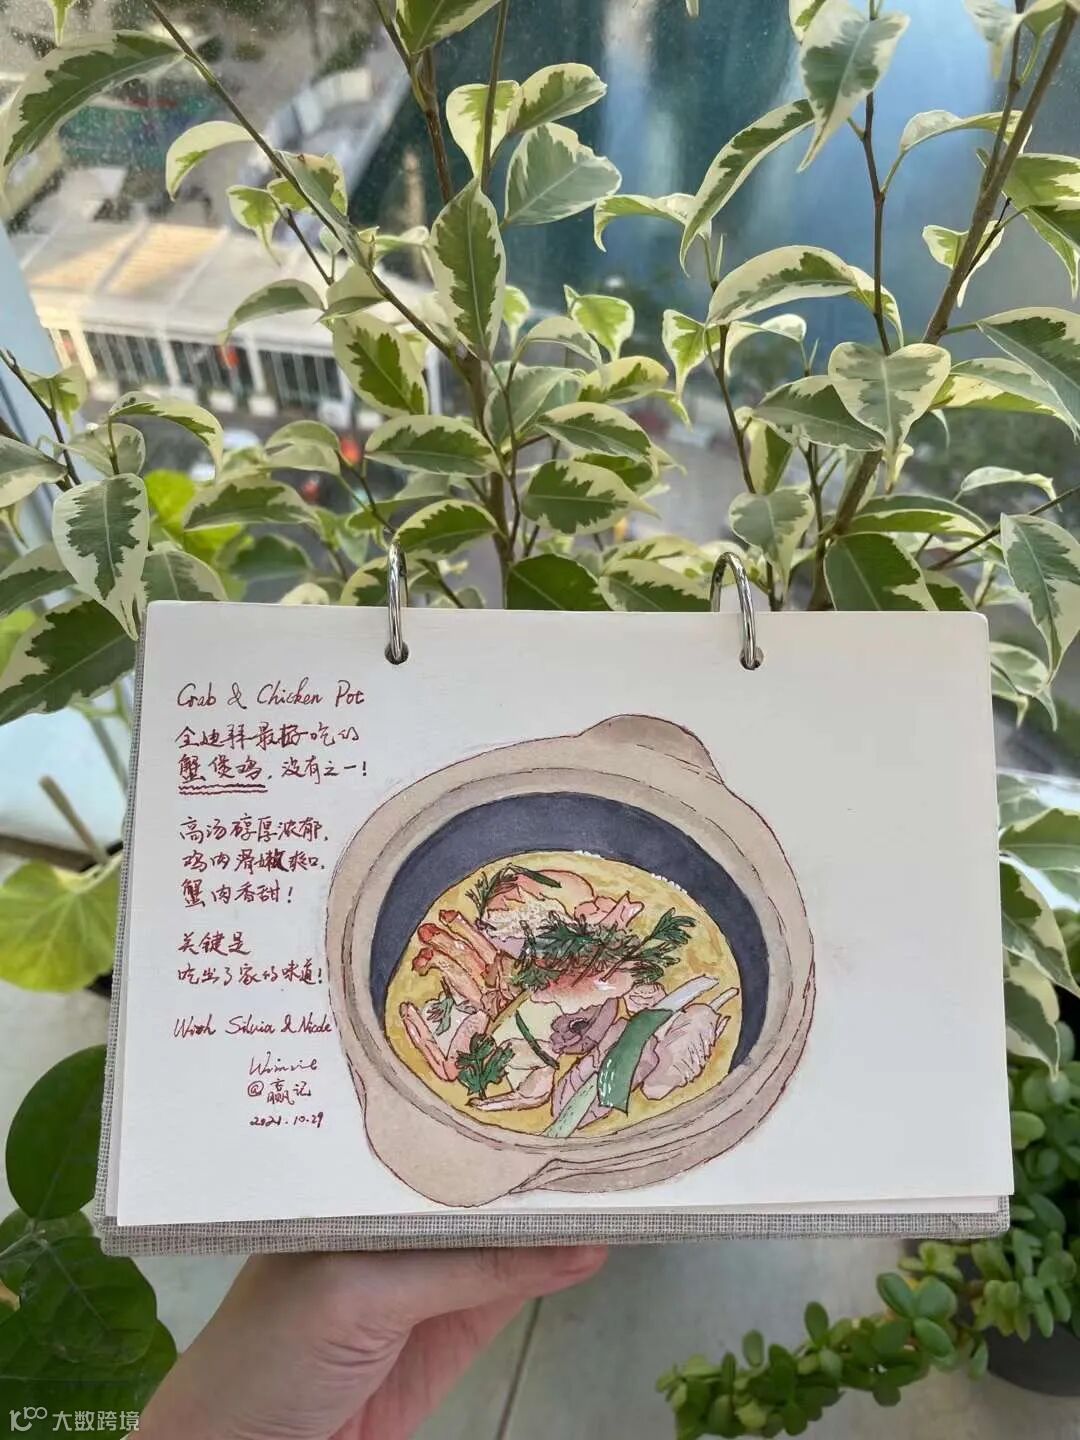 Crab & Chicken Pot
全迪拜最好吃的
蟹煲鸡，没有之一！
高汤醇厚浓郁，
鸡肉滑嫩爽口，
蟹肉香甜！
关键是
吃出了家的味道！
With Silvia & Nicole
Winnie
@赢记
2021.10.29
大数跨境